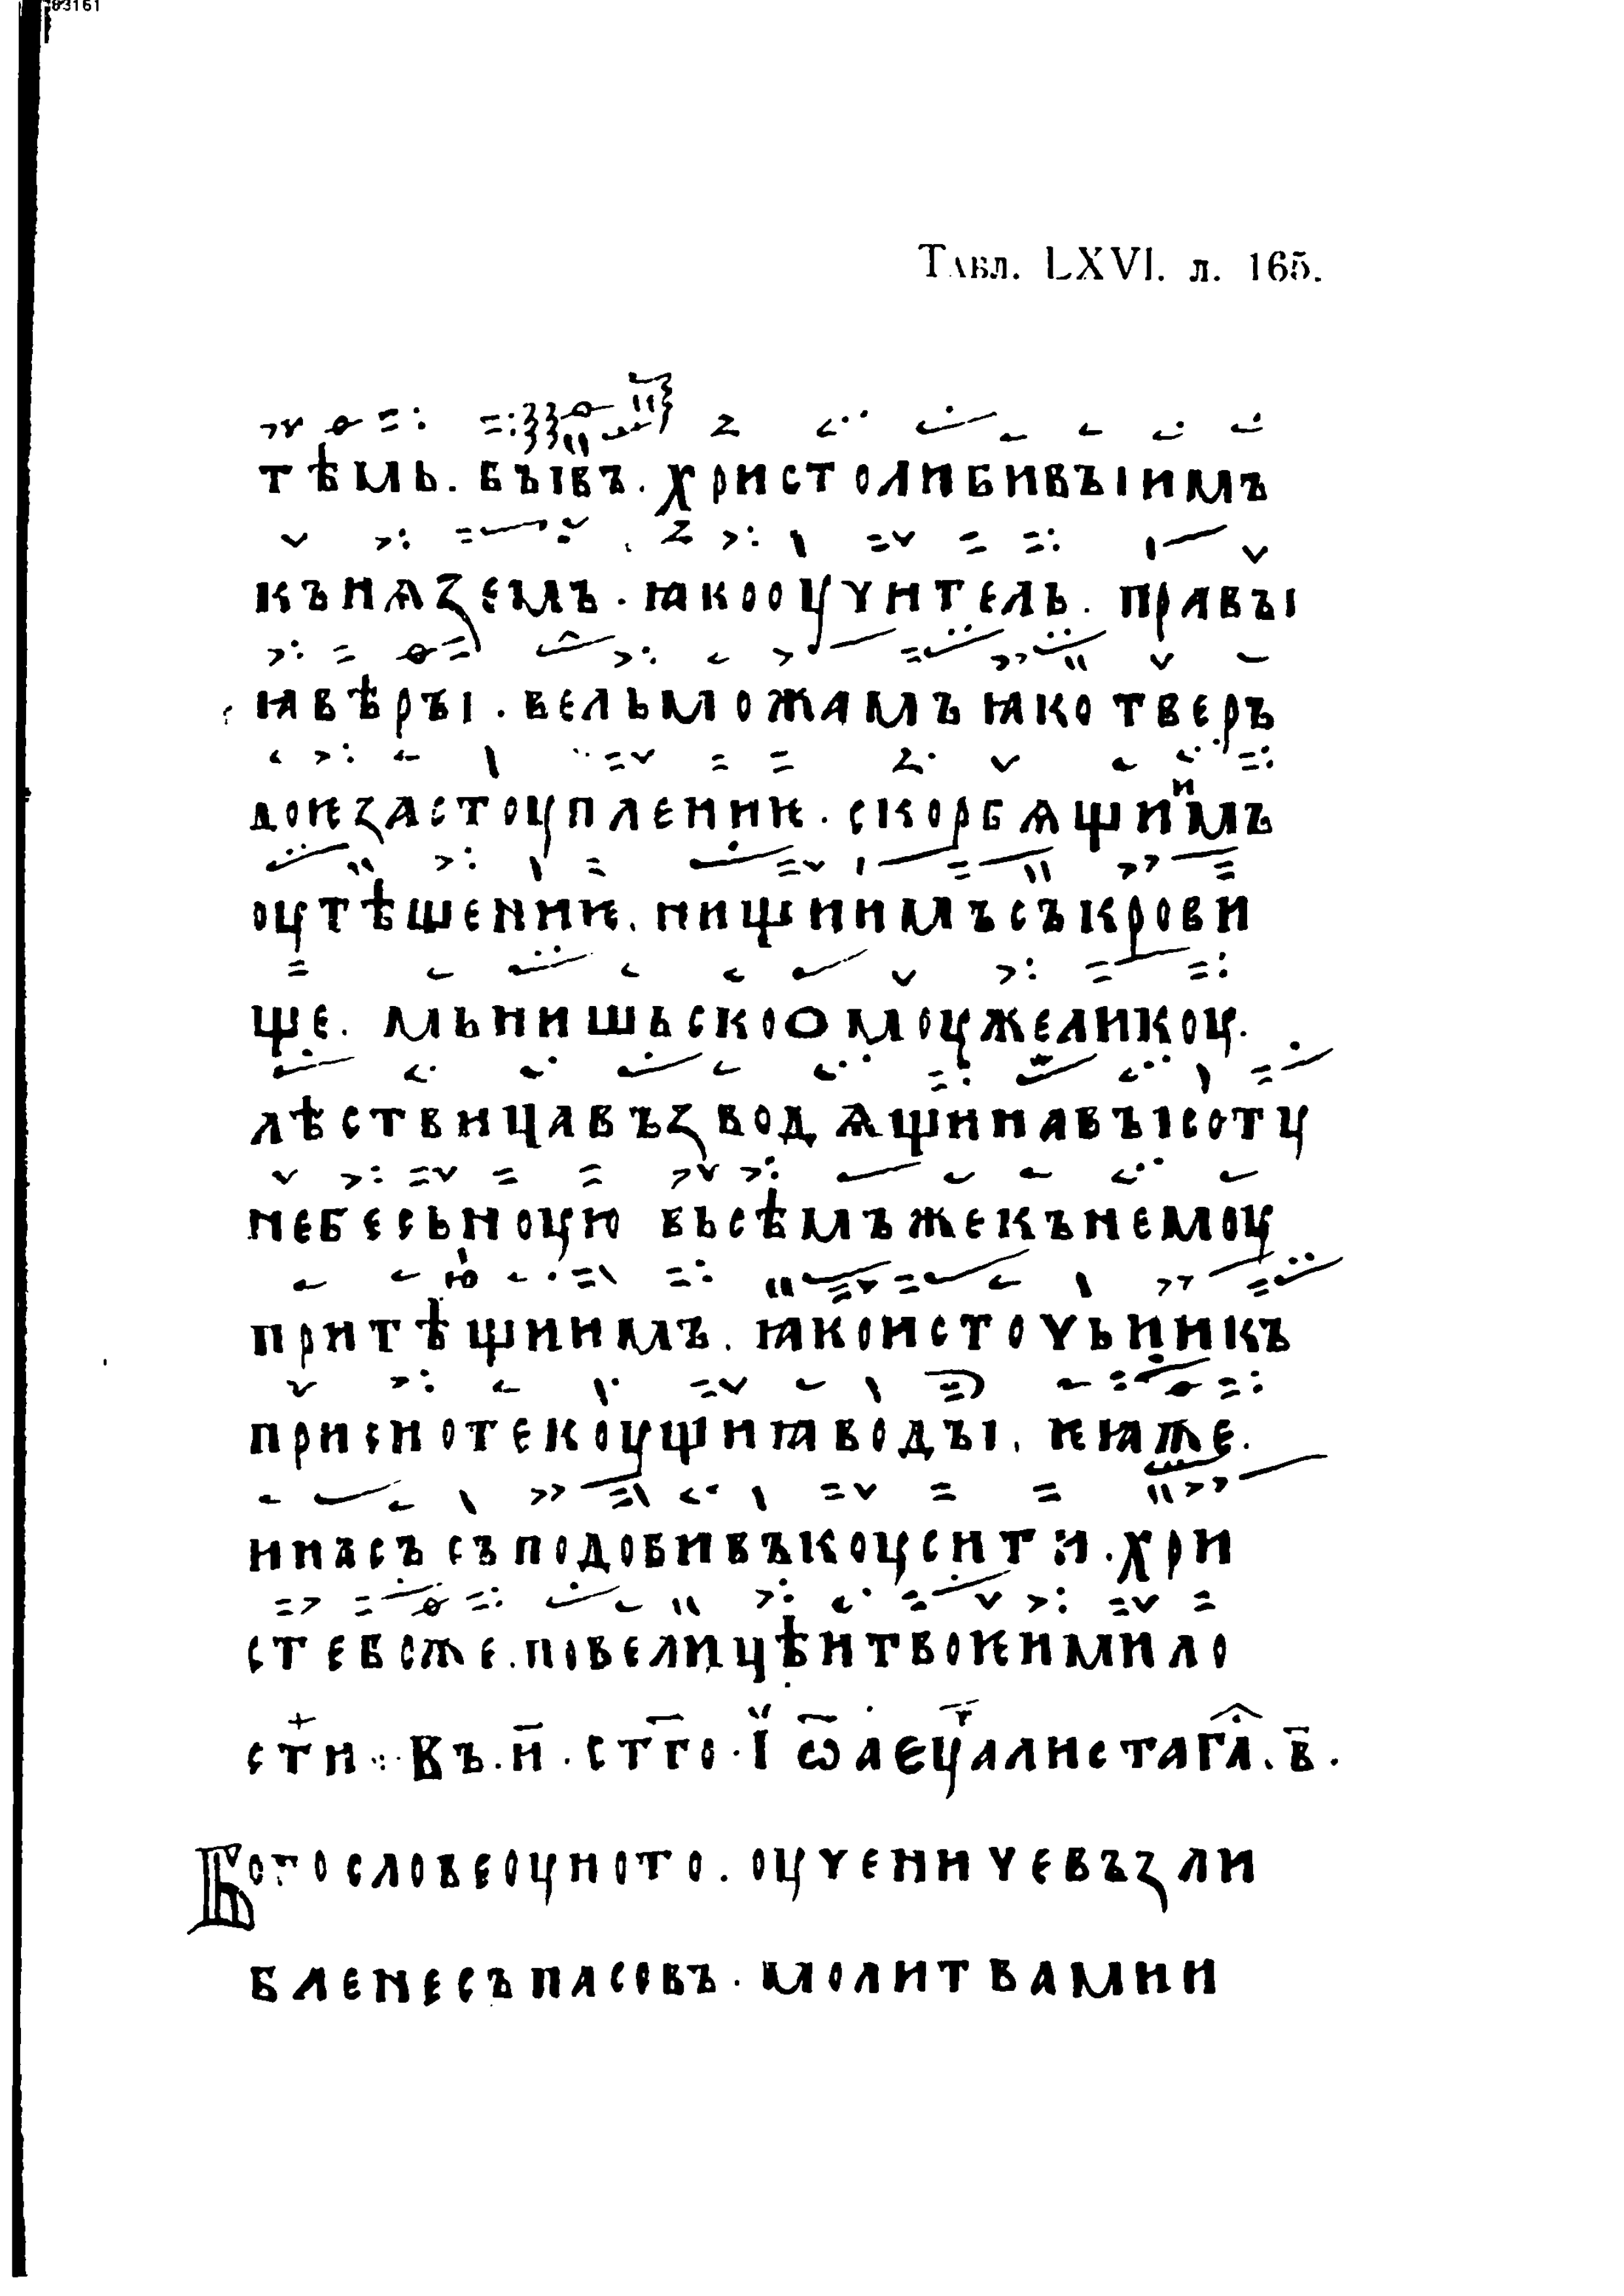 83161
Табл. LXVI. л. 165.
тѣмь. бъівъ. христолибивъіимъ
кънѧземъ. ꙗкооцүитель. правъі
ꙗвѣръі. вельможамъꙗкотверъ
доѥзастоцплениѥ. скорбѧщиимъ
оцтѣшениѥ. нищиимъсъкрови
ще. мьнишьскоомоцжеликоц.
лѣствицавъзводѧщинавъісотц
небесьноцю вьсѣмъжекънемоц
притѣщиимъ. ꙗкоисточьникъ
приснотекоцщиꙗводъі. ѥꙗже.
инасъсъподобивъкоцсити. хри
стебоже. повелицѣитвоѥимило
сти ⁘ Въ. н̄. стг҃о. І ѡ҃аецⷮалистагл҃. в҃.
Богословеоцното. оцченичевъзли
бленесъпасовъ. молитвамии